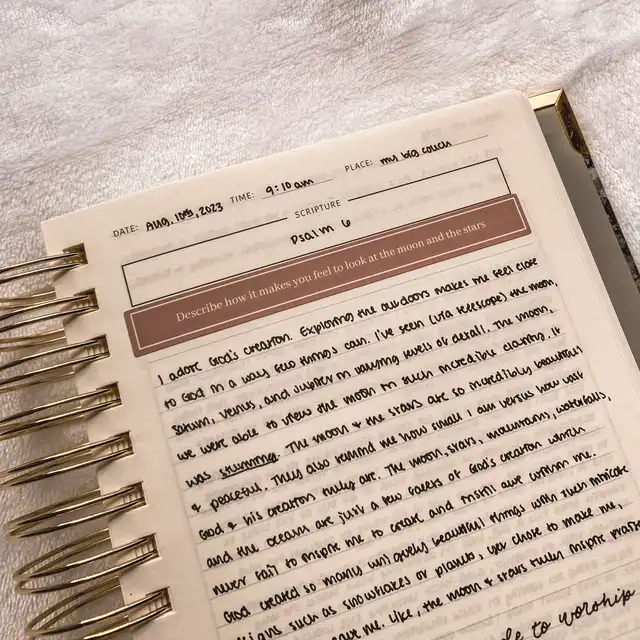 DATE: AUG. 10th, 2023 TIME: 9:10 am PLACE: my big couch
SCRIPTURE
Psalm 6
Describe how it makes you feel to look at the moon and the stars
I adore God's creation. Exploring the outdoors makes me feel close
to God in a way few things can. I've seen (via telescope) the moon,
saturn, venus, and Jupiter in varying levels of detail. The moon,
we were able to view the moon in such incredible clarity. It
was stunning. The moon & the stars are so incredibly beautiful
& peaceful. They also remind me how small I am versus how vast
God & his creation truly are. The moon, stars, mountains, waterfalls,
and the ocean are just a few facets of God's creation which
never fail to inspire me to create and instill awe within me.
God created so many uniquely beautiful things with such intricate
designs such as snowflakes or planets, yet chose to make me,
me. Like, the moon & stars truly inspire
to worship